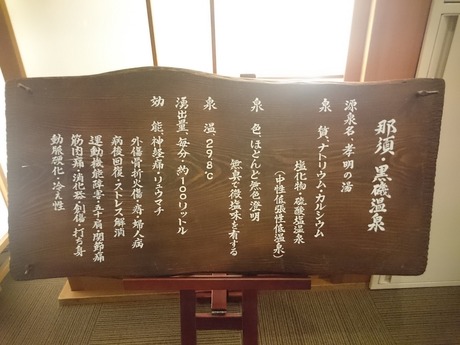 那須・黒磯温泉
源泉名、孝明の湯
泉　質、ナトリウム・カルシウム
塩化物・硫酸塩温泉
(中性低張性低温泉)
泉　色、ほとんど無色澄明
無臭で微塩味を有する
泉　温、29.8℃
湧出量、毎分・約100リットル
効　能、神経痛・リュウマチ
外傷骨折火傷・痔・婦人病
病後回復・ストレス解消
運動機能障害・五十肩・関節痛
筋肉痛・消化器・創傷・打ち身
動脈硬化・冷え性